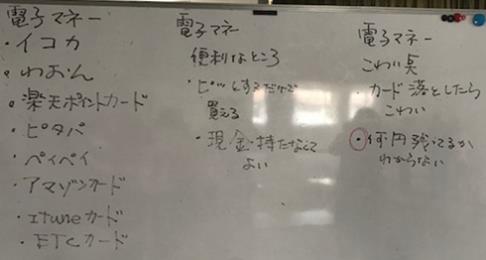 電子マネー
・イコカ
・わおん
・楽天ポイントカード
・ピタパ
・ペイペイ
・アマゾンカード
・ituneカード
・ETCカード
電子マネー
便利なところ
・ピッとするだけで
買える
・現金持たなくて
よい
電子マネー
こわい点
・カード落としたら
こわい
・何円残ってるか
わからない